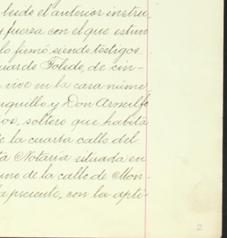 leido el anterior instru-
y fuerza con el que estim
lo firmó, siendo testigos
Toledo, de cin-
vive en la casa núme
Don
soltero que habita
la cuarta calle del
Notaría situada en
uno de la calle de Mon-
la presente, con la apli-
2